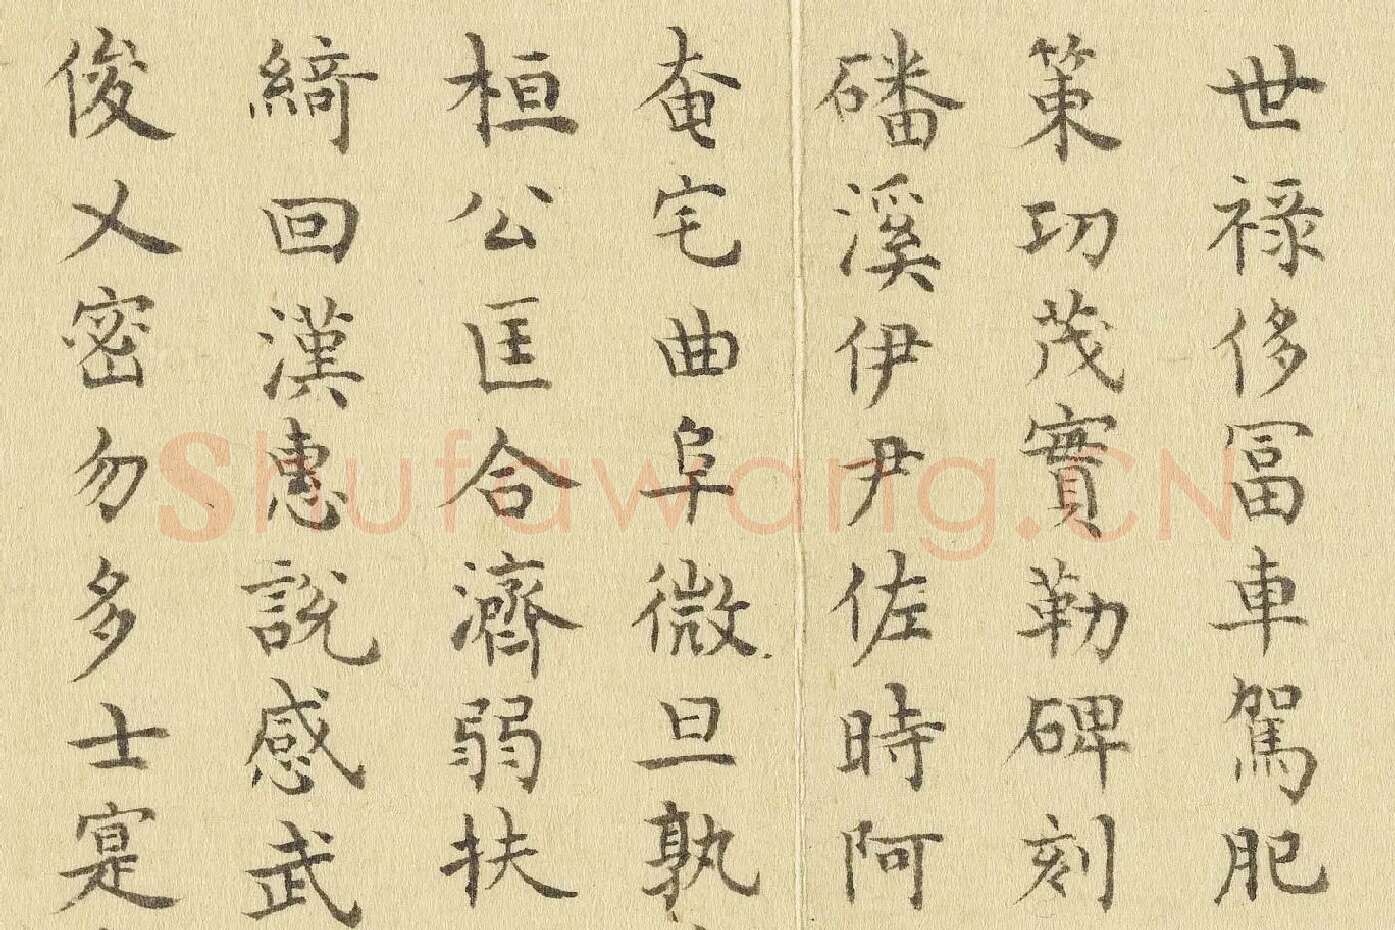 世禄侈冨車駕肥
策功茂實勒碑刻
磻溪伊尹佐時阿
奄宅曲阜微旦孰
桓公匡合濟弱扶
綺回漢惠説感武
俊乂密勿多士寔
Shufawang.CN